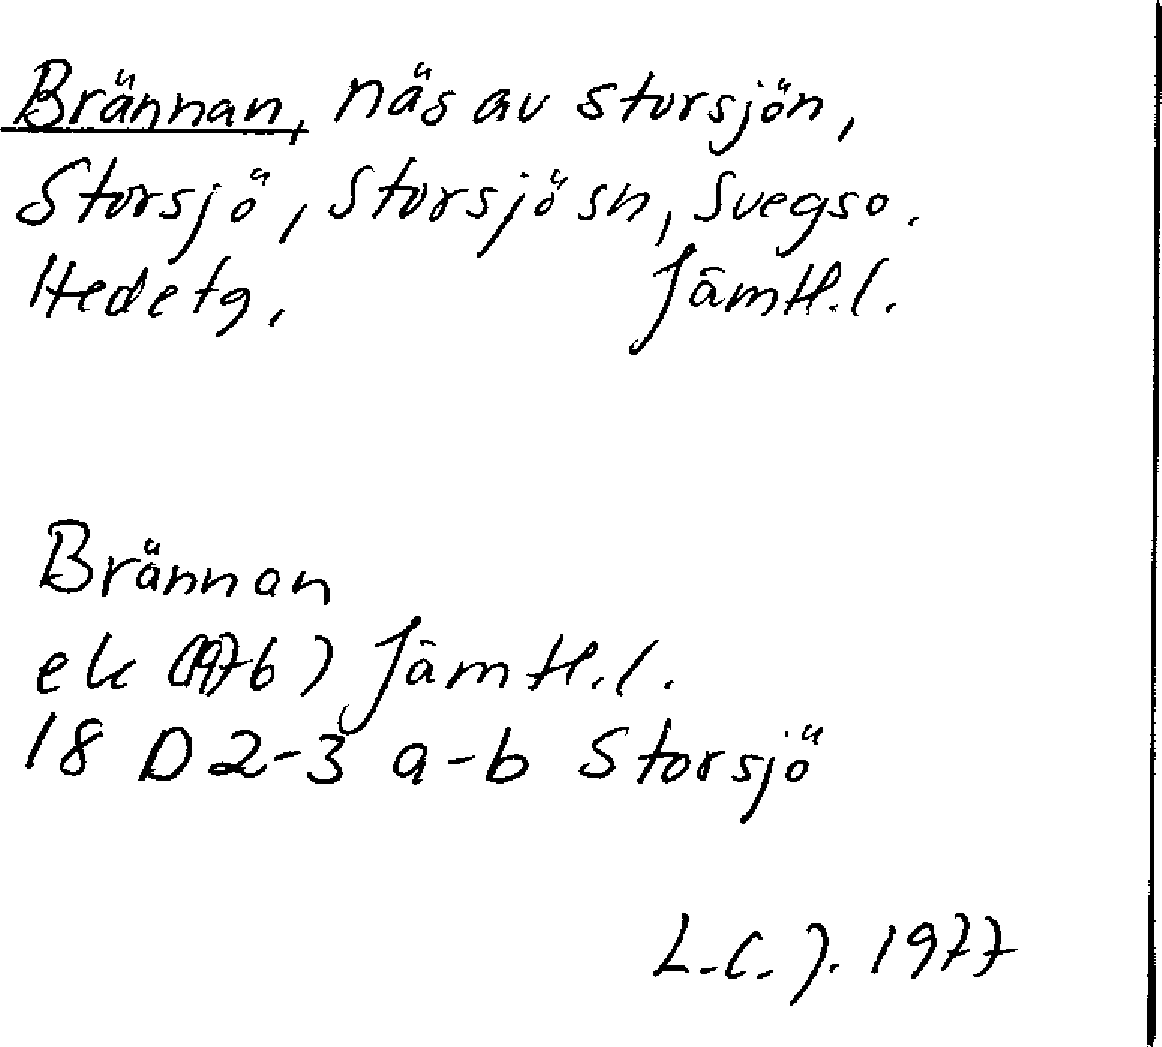 Brännan, näs av Storsjön,
Storsjö, Storsjö sn, Svegs o.
Hede tg, Jämtl.l.
Brännan
ek (1976) Jämtl.l.
18 D 2-3 a-b Storsjö
L.C.J. 1977